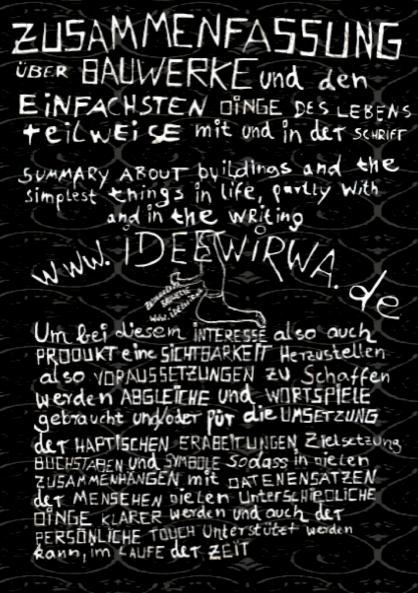 ZUSAMMENFASSUNG
ÜBER BAUWERKE und den
EINFACHSTEN DINGE DES LEBENS
teilweise mit und in der SCHRIFT
SUMMARY ABOUT buildings and the
simplest things in life, partly with
and in the WRiting
www.iDEEWiRWA.de
www.ideewirwa
Um bei diesem INTERESSE also auch
PRODUKT eine SICHTBARKEIT Herzustellen
also VORAUSSETZUNGEN zu Schaffen
werden ABGLEICHE und WORTSPIELE
gebraucht und/oder für die UMSETZUNG
der HAPTISCHEN ERABEITUNGEN Zielsetzung
BUCHSTABEN und SYMBOLE Sodass in vielen
ZUSAMMENHÄNGEN mit DATENENSATZEN
der MENSEHEN vielen UnterSCHIEDLICHE
DINGE KLARER werden und auch der
PERSÖNLICHE TOUCH Unterstützt werden
kann, im LAUFE der ZEIT